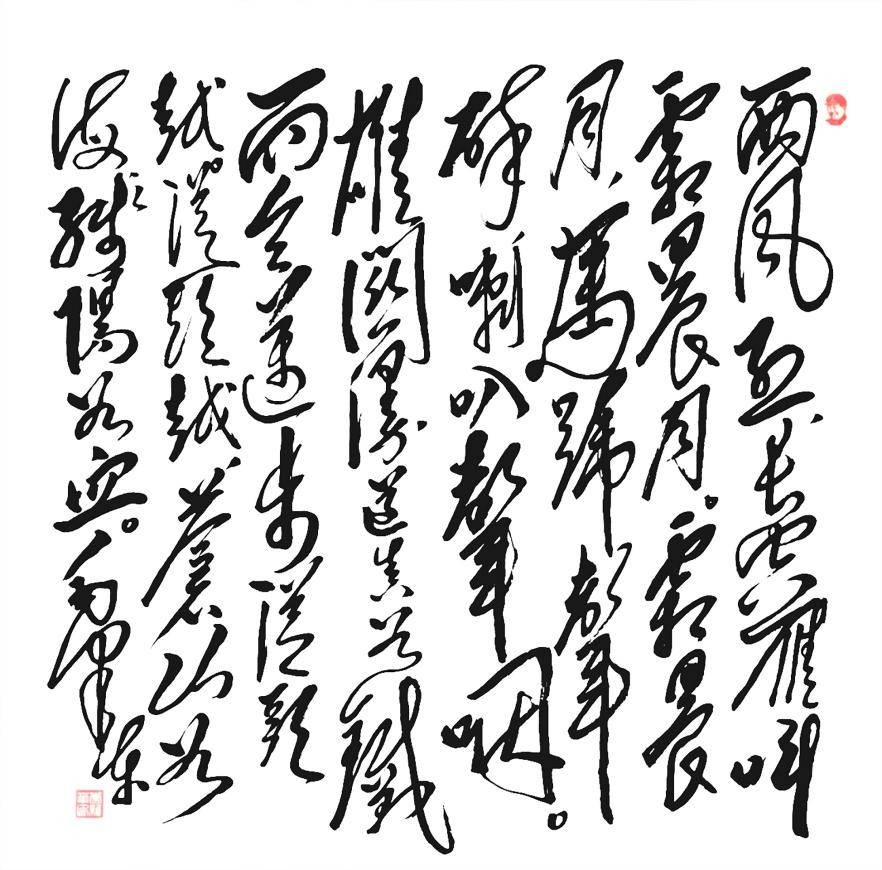 西風烈長空雁叫
霜晨月。霜晨
月、馬蹄聲
碎喇叭聲咽。
雄關漫道真如鐵
而今邁步從頭
越。從頭越、蒼山如
海、殘陽如血。毛澤東